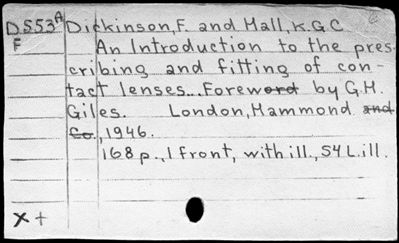 D553A Dickinson, F. and Hall, K.G.C.
F An Introduction to the pres-
cribing and fitting of con-
tact lenses... Foreword by G.H.
Giles. London, Hammond and
Co., 1946.
168 p., 1 front, with ill., 54 L. ill.
X +